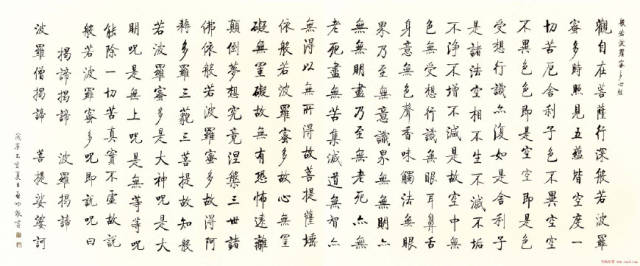 般若波羅蜜多心經
觀自在菩薩行深般若波羅
蜜多時照見五蘊皆空度一
切苦厄舍利子色不異空空
不異色色即是空空即是色
受想行識亦復如是舍利子
是諸法空相不生不滅不垢
不淨不增不減是故空中無
色無受想行識無眼耳鼻舌
身意無色聲香味觸法無眼
界乃至無意識界無無明亦
無無明盡乃至無老死亦無
老死盡無苦集滅道無智亦
無得以無所得故菩提薩埵
依般若波羅蜜多故心無罣
礙無罣礙故無有恐怖遠離
顛倒夢想究竟涅槃三世諸
佛依般若波羅蜜多故得阿
耨多羅三藐三菩提故知般
若波羅蜜多是大神咒是大
明咒是無上咒是無等等咒
能除一切苦真實不虛故說
般若波羅蜜多咒即說咒曰
揭諦揭諦 波羅揭諦
波羅僧揭諦 菩提娑婆訶
夏日啟功敬書